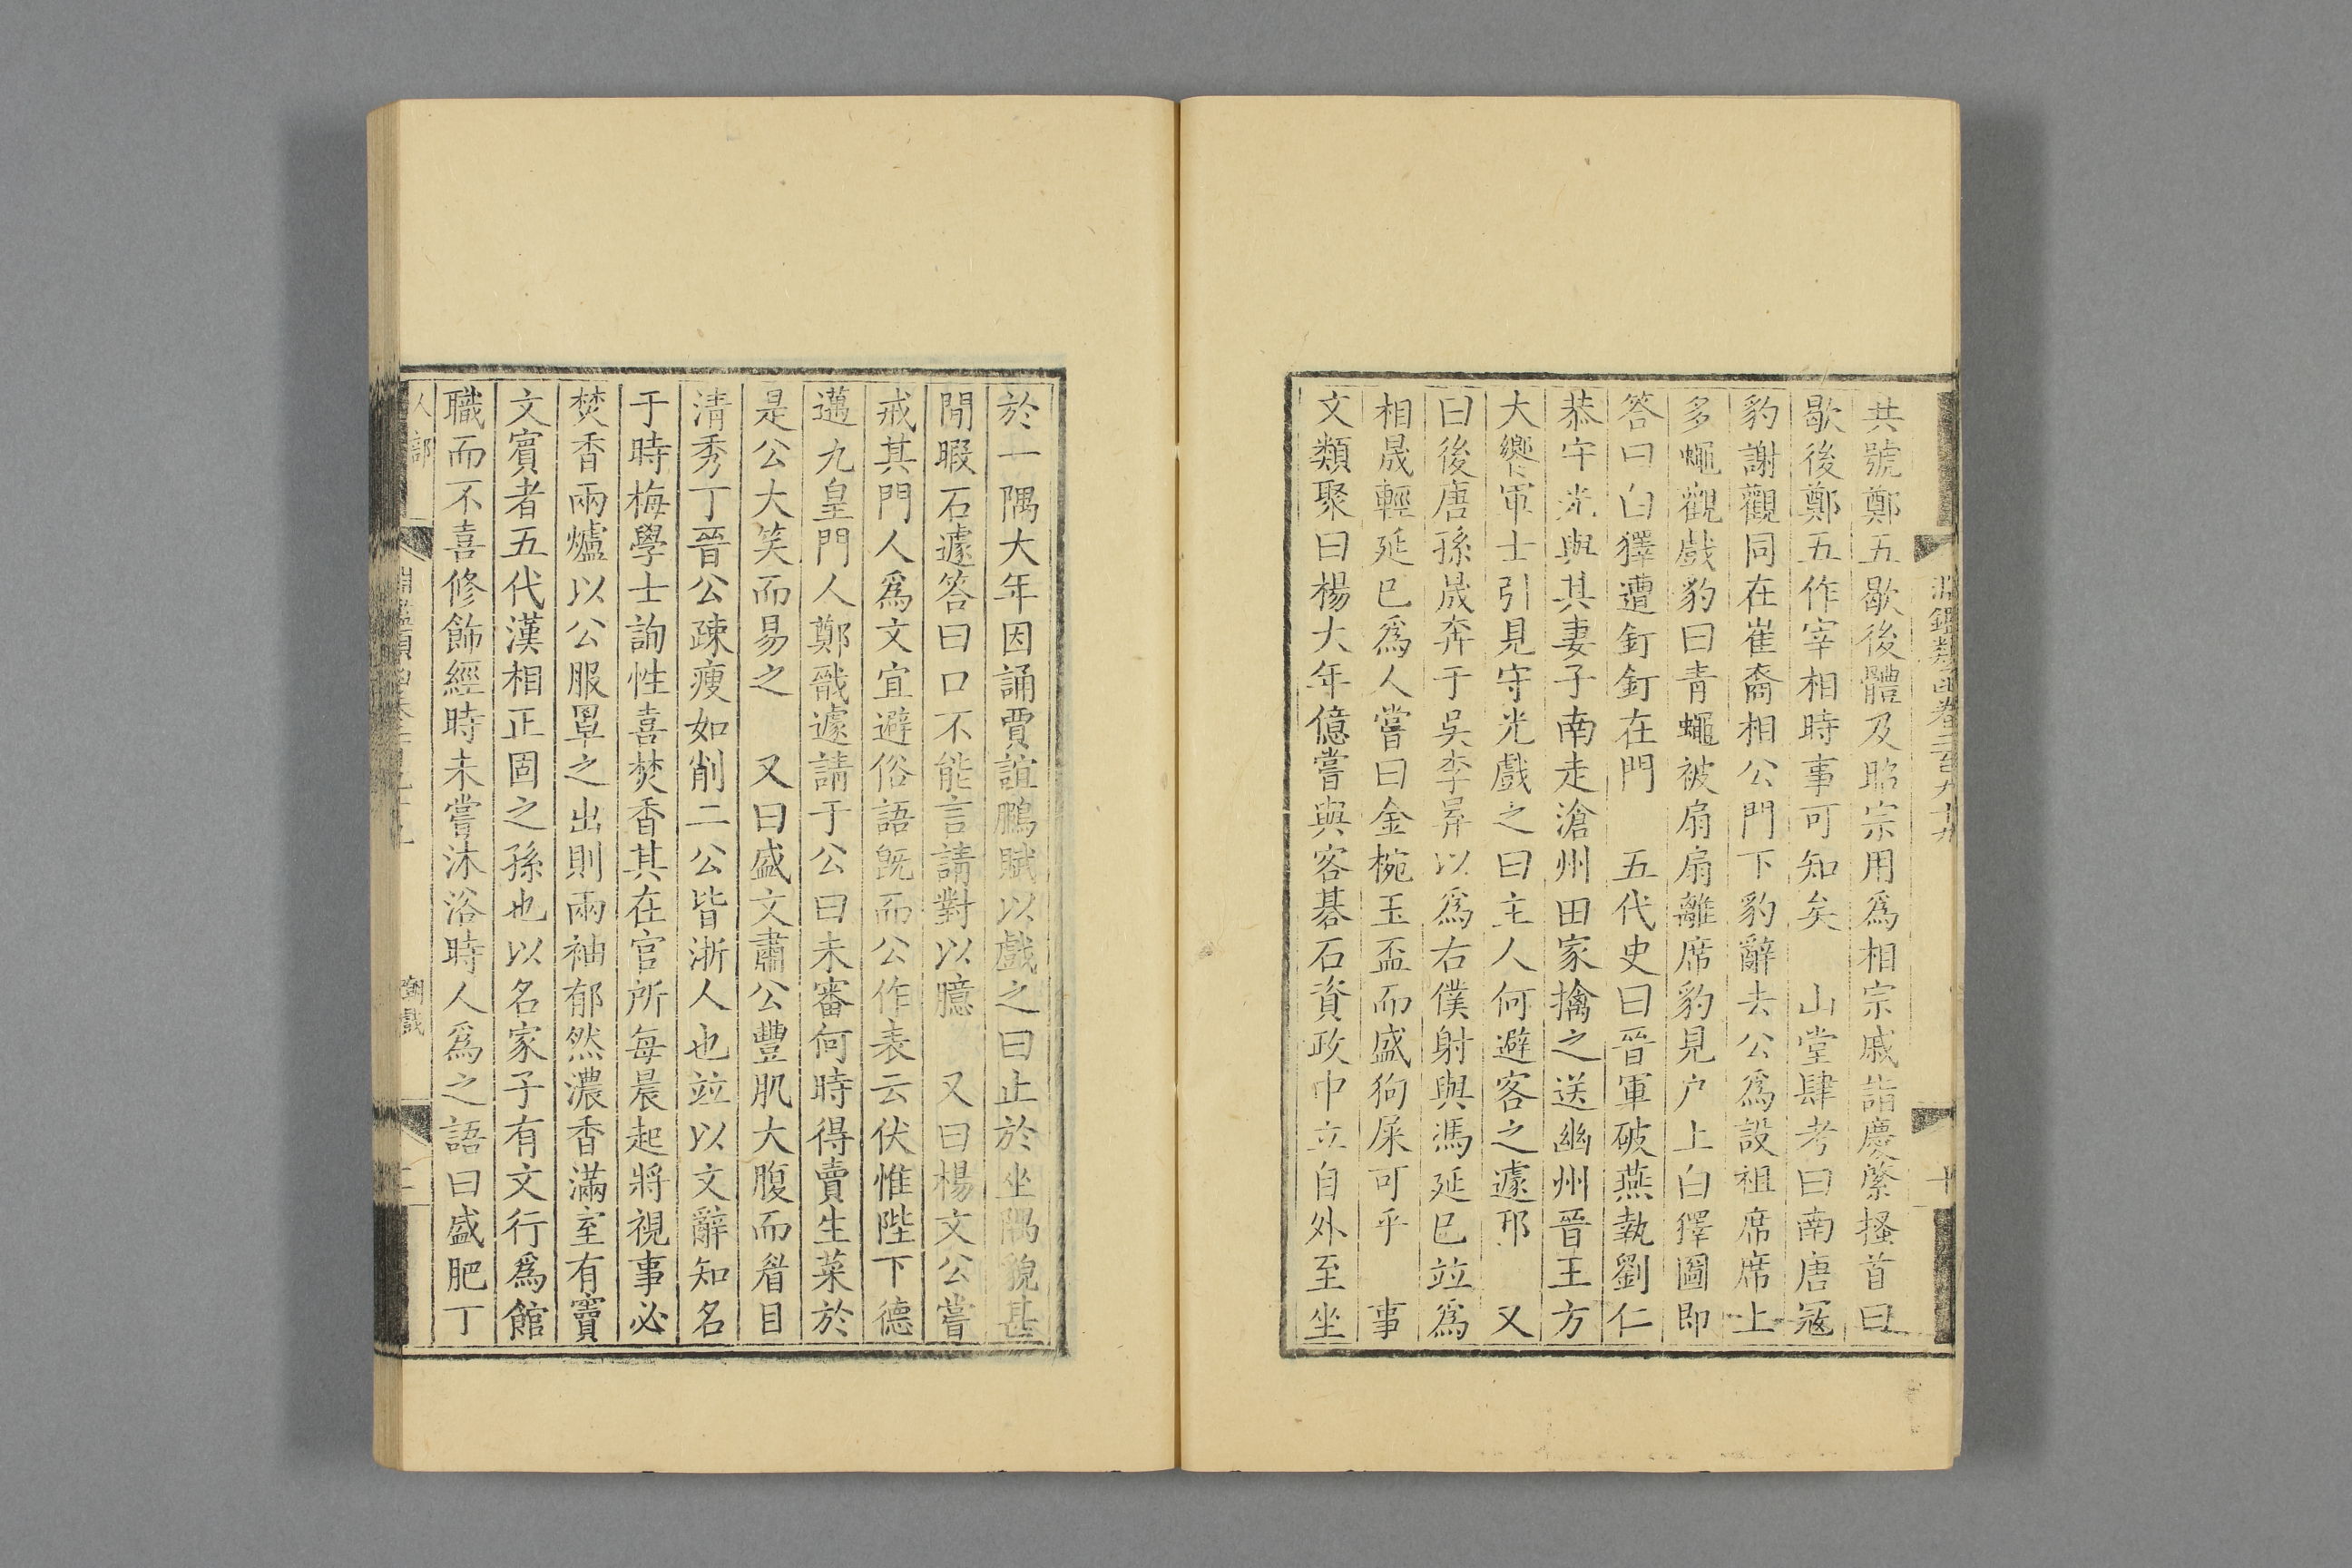 淵鑑類函卷二百九十九
十
共號鄭五歇後體及昭宗用爲相宗戚詣慶縈搔首曰
歇後鄭五作宰相時事可知矣　山堂肆考曰南唐寇
豹謝觀同在崔裔相公門下豹辭去公爲設祖席席上
多蠅觀戲豹曰青蠅被扇扇離席豹見户上白獐圖即
答曰白獐遭釘釘在門　五代史曰晉軍破燕執劉仁
恭守光與其妻子南走滄州田家擒之送幽州晉王方
大饗軍士引見守光戲之曰主人何避客之遽邪　又
曰後唐孫晟奔于吳李昪以爲右僕射與馮延巳竝爲
相晟輕延巳爲人嘗曰金椀玉盃而盛狗屎可乎　事
文類聚曰楊大年億嘗與客碁石資政中立自外至坐
於一隅大年因誦賈誼鵩賦以戲之曰止於坐隅貌甚
閒暇石遽答曰口不能言請對以臆　又曰楊文公嘗
戒其門人爲文宜避俗語旣而公作表云伏惟陛下德
邁九皇門人鄭戩遽請于公曰未審何時得賣生菜於
是公大笑而易之　又曰盛文肅公豐肌大腹而眷目
清秀丁晉公疎瘦如削二公皆浙人也竝以文辭知名
于時梅學士詢性喜焚香其在官所每晨起將視事必
焚香兩爐以公服罩之出則兩袖郁然濃香滿室有竇
文賓者五代漢相正固之孫也以名家子有文行爲館
職而不喜修飾經時未嘗沐浴時人爲之語曰盛肥丁
人部
嘲戲